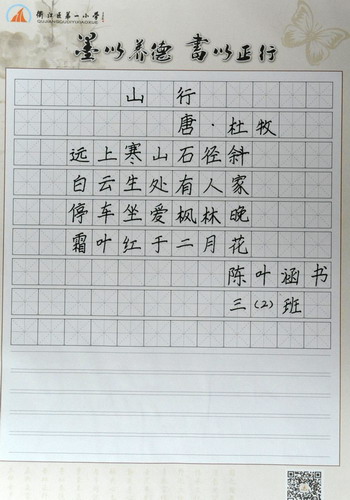 衢江区第一小学
墨以养德 書以正行
山行
唐·杜牧
远上寒山石径斜
白云生处有人家
停车坐爱枫林晚
霜叶红于二月花
陈叶涵书
三(2)班